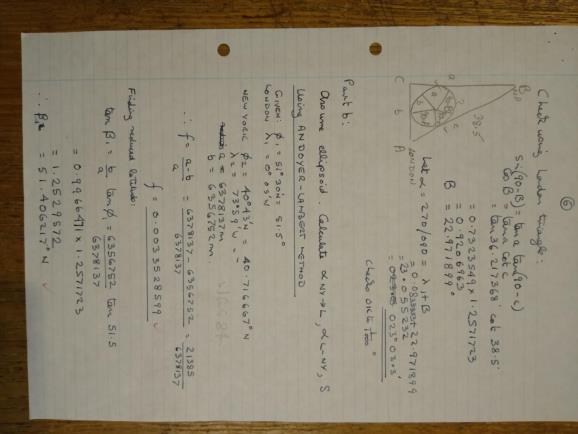 6
Check using London triangle:
Sin(90-B) = tan a tan(90-c)
Cos B = tan a cot c
= tan 36.217368 . cot 38.5
= 0.7323549 x 1.2571723
= 0.9206963
B = 22.971899°
B
NP
a
38.5
C
b
A
LONDON
Let α = 270/080 = λ1 + B
= 0.083333 + 22.971899
= 23.055232
= 023°03.3'
Checks OK too
Part b:
Assume ellipsoid. Calculate α NY→L, α L-NY, S
Using ANDOYER-LAMBERT METHOD
GIVEN: φ1 = 51°30'N = 51.5°
LONDON λ1 = 0°05'W
NEW YORK φ2 = 40°43'N = 40.716667°N
λ2 = 73°59'W
a = 6378137m
b = 6356752m
∴ f = a-b / a = 6378137 - 6356752 / 6378137 = 21385 / 6378137
f = 0.0033528599 ✓
Finding reduced latitude:
tan β1 = b/a tan φ = 6356752 / 6378137 tan 51.5
= 0.9966471 x 1.2571723
= 1.2529572
∴ β1 = 51.406217°N ✓